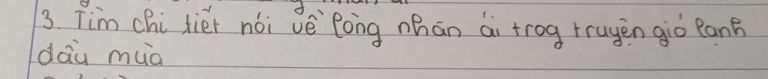 3. Tìm chi tiết nói về lòng nhân ái trog truyện gió lạnh
đầu mùa